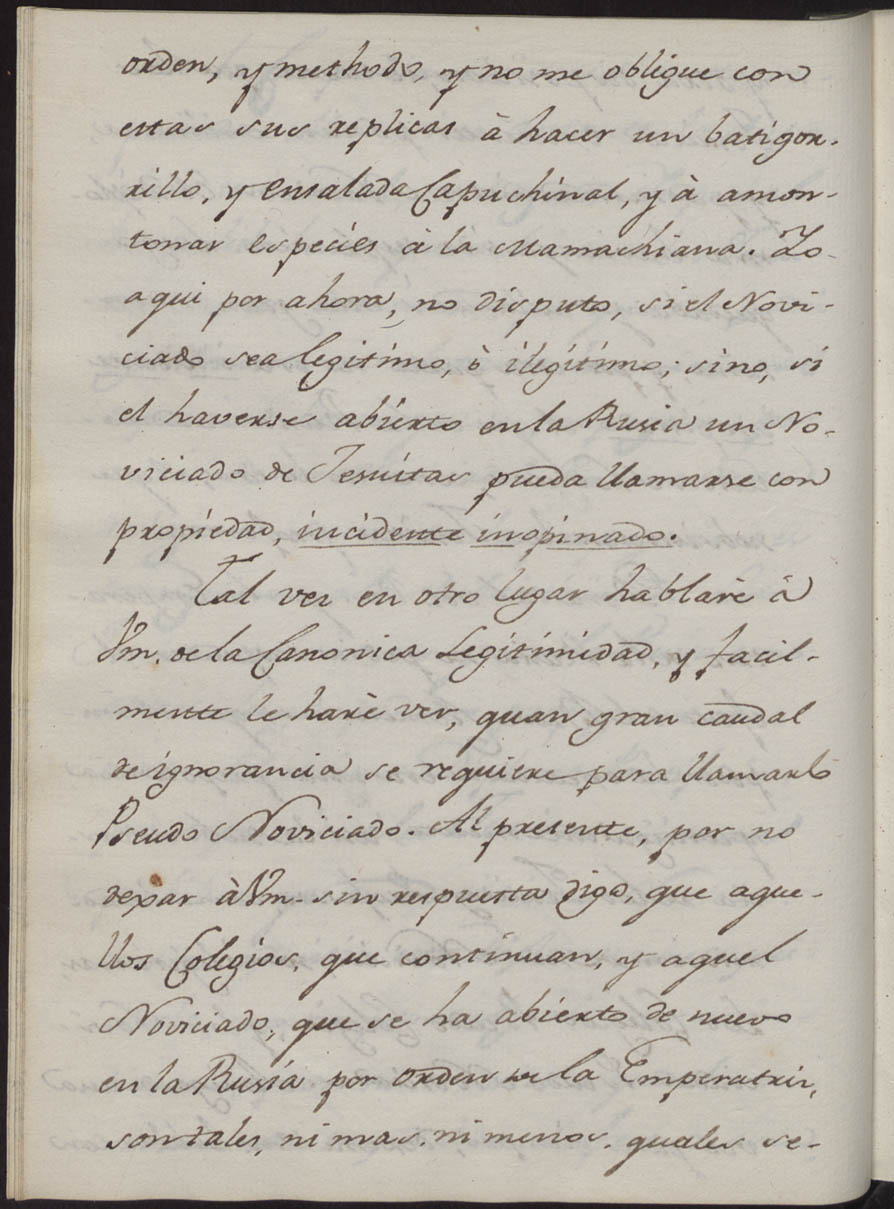 orden, y methodo, y no me obligue con
estas sus replicas à hacer un batigor-
rillo, y ensalada Capuchinal, y à amon-
tonar especies à la Mamachiana. Yo
aqui por ahora, no disputo, si el Novi-
ciado sea legitimo, ò ilegitimo; sino, si
el haverse abierto en la Rusia un No-
viciado de Jesuitas pueda llamarse con
propiedad, incidente inopinado.
Tal vez en otro lugar hablarè à
Vm. de la Canonica Legitimidad, y facil-
mente le harè ver, quan gran caudal
de ignorancia se requiere para llamarlo
Pseudo Noviciado. Al presente, por no
dexar à Vm. sin respuesta digo, que aque-
llos Colegios, que continuan, y aquel
Noviciado, que se ha abierto de nuevo
en la Rusia por orden de la Emperatriz,
son tales, ni mas, ni menos, quales se-